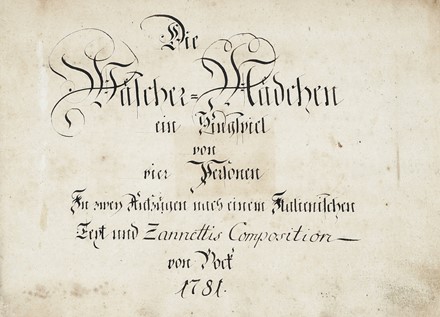 Die
Wäscher=Mädchen
ein Singspiel
von
vier Personen
In zwey Aufzügen nach einem Italienischen
Text und Zannettis Composition
von Bock
1781.